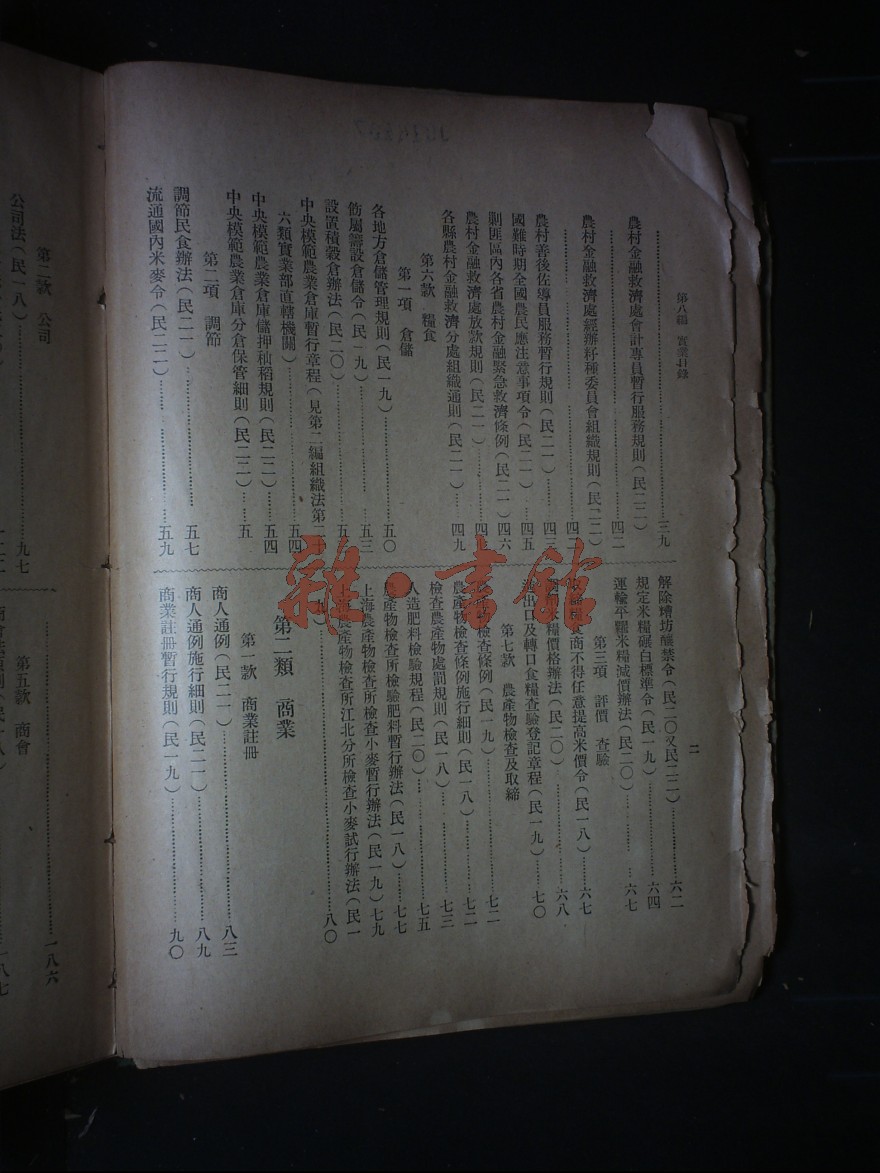 第八編 實業目錄
二
農村金融救濟處會計專員暫行服務規則(民二二)
……三九
農村金融救濟處經辦籽種委員會組織規則(民二二)
……四二
農村善後佐導員服務暫行規則(民二一)……四三
國難時期全國農民應注意事項令(民二一)……四五
剿匪區內各省農村金融緊急救濟條例(民二一)四六
農村金融救濟處放款規則(民二一)……四
各縣農村金融救濟分處組織通則(民二一)……四九
第六款 糧食
第一項 倉儲
各地方倉儲管理規則(民一九)……五〇
飭屬籌設倉儲令(民一九)……五三
設置積穀倉辦法(民二〇)……五
中央模範農業倉庫暫行章程(見第二編組織法第二十
六類實業部直轄機關)……五四
中央模範農業倉庫儲押秈稻規則(民二二)……五四
中央模範農業倉庫分倉保管細則(民二二)……五
第二項 調節
調節民食辦法(民二一)……五七
流通國內米麥令(民二二)……五九
解除糟坊釀禁令(民二〇又民二二)……六二
規定米糧碾白標準令(民一九)……六四
運輸平糶米糧減價辦法(民二〇)……六七
第三項 評價 查驗
食商不得任意提高米價令(民一八)……六七
米糧價格辦法(民二〇)……六八
出口及轉口食糧查驗登記章程(民一九)……七〇
第七款 農產物檢查及取締
物檢查條例(民一九)……七二
農產物檢查條例施行細則(民一八)……七二
檢查農產物處罰規則(民一八)……七三
人造肥料檢驗規程(民二〇)……七五
農產物檢查所檢驗肥料暫行辦法(民一八)……七七
上海農產物檢查所檢查小麥暫行辦法(民一九)七九
上海農產物檢查所江北分所檢查小麥試行辦法(民一
)……八〇
第二類 商業
第一款 商業註冊
商人通例(民二一)……八三
商人通例施行細則(民二一)……八九
商業註冊暫行規則(民一九)……九〇
第二款 公司
公司法(民一八)……九七
……一八六
第五款 商會
雜·書館